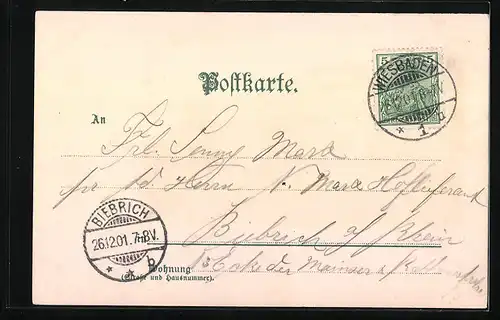 5
WIESBADEN
* 1 d
Postkarte.
An
Frl. Jenny Marx
pr. Ad. Herrn N. Marx Hoflieferant
BIEBRICH
26.12.01. 7-8V.
* * b
Biebrich a/ Rhein
Ecke der Mainzer &
Wohnung
(Straße und Hausnummer).